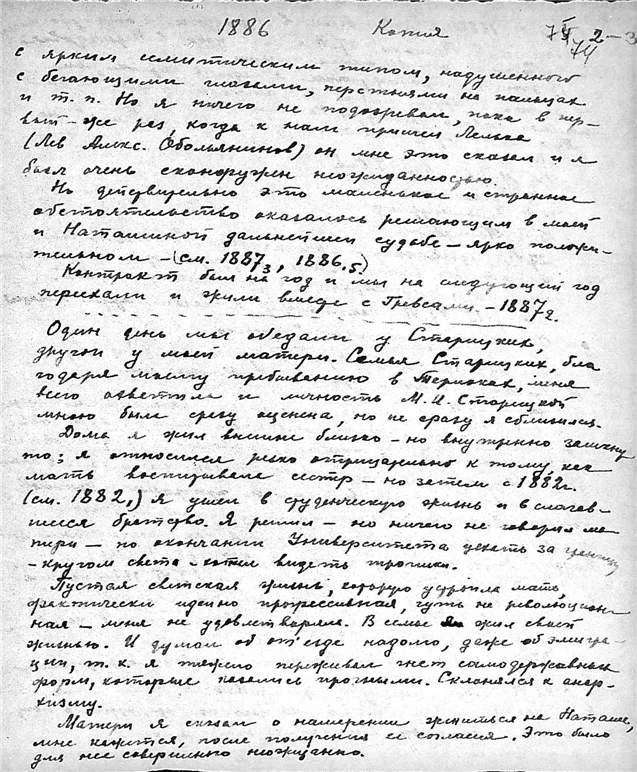 1886 Копия 74 2-3
74
с ярким семитическим типом, надушенного
с бегающими глазами, перстнями на пальцах
и т.п. Но я ничего не подозревал, пока в пер-
вый-же раз, когда к нам пришел Лелька
(Лев Алкс. Обольянинов) он мне это сказал и я
был очень сконфужен неожиданностью.
Но действительно это маленькое и странное
обстоятельство оказалось решающим в моей
и Наташиной дальнейшей судьбе - ярко положи-
тельном - (см. 1887₃, 1886.₅)
Контракт был на год и мы на следующий год
переехали и жили вместе с Гревсами. - 1887₂.
Один день мы обедали у Старицких,
другой у моей матери. Семья Старицких, бла
годаря моему пребыванию в Териоках, меня
всего охватила и личность М.И. Старицкой
мною была сразу оценена, но не сразу я сблизился.
Дома я жил внешне близко - но внутренно замкну
то; я относился резко отрицательно к тому, как
мать воспитывала сестр - но затем с 1882г.
(см. 1882,) я ушел в студенческую жизнь и в слагав-
шееся братство. Я решил - но ничего не говорил ма-
тери - по окончании Университета уехать за границу
- кругом света - хотел видеть тропики.
Пустая светская жизнь, которую устроила мать,
фактически идейно прогрессивная, чуть не революцион-
ная - меня не удовлетворяла. В семье я жил своей
жизнью. И думал об от'езде надолго, даже об эмигра-
ции, т.к. я тяжело переживал гнет самодержавных
форм, которые казались прочными. Склонялся к анар-
хизму.
Матери я сказал о намерении жениться на Наташе,
мне кажется, после получения ее согласия. Это было
для нее совершенно неожиданно.